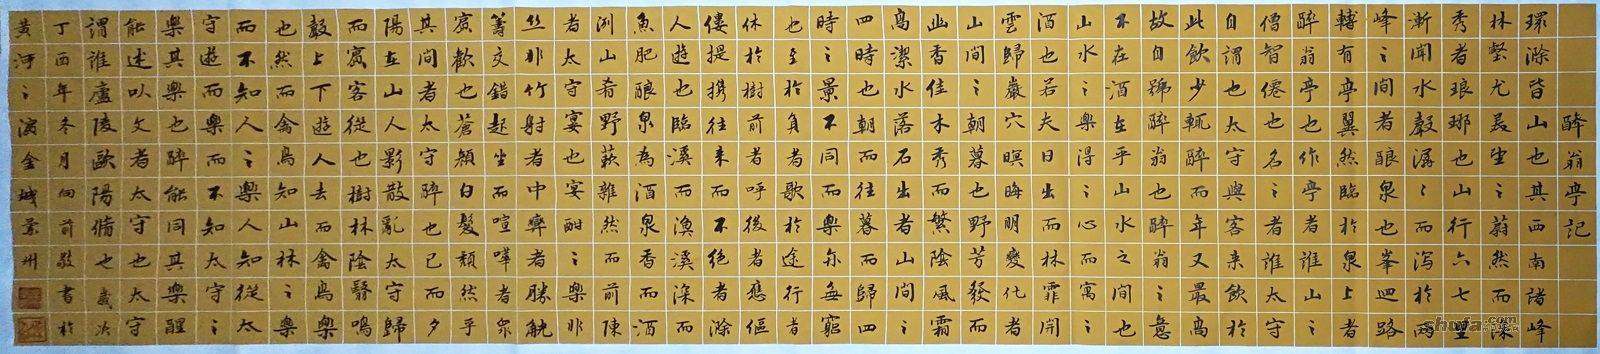 醉翁亭記
環滁皆山也其西南諸峰
林壑尤美望之蔚然而深
秀者琅琊也山行六七里
漸聞水聲潺潺而瀉於兩
峰之間者釀泉也峯迴路
轉有亭翼然臨於泉上者
醉翁亭也作亭者誰山之
僧智僊也名之者誰太守
自謂也太守與客來飲於
此飲少輒醉而年又最高
故自號醉翁也醉翁之意
不在酒在乎山水之間也
山水之樂得之心而寓之
酒也若夫日出而林霏開
雲歸巖穴暝晦明變化者
山間之朝暮也野芳發而
幽香佳木秀而繁陰風霜
高潔水落石出者山間之
四時也朝而往暮而歸四
時之景不同而樂亦無窮
也至於負者歌於途行者
休於樹前者呼後者應傴
僂提携往來而不絕者滁
人遊也臨溪而漁溪深而
魚肥釀泉為酒泉香而酒
洌山肴野蔌雜然而前陳
者太守宴也宴酣之樂非
丝非竹射者中弈者勝觥
籌交錯起坐而喧嘩者眾
賓歡也蒼顏白髮頹然乎
其間者太守醉也已而夕
陽在山人影散亂太守歸
而賓客從也樹林陰翳鳴
聲上下遊人去而禽鳥樂
也然而禽鳥知山林之樂
而不知人之樂人知從太
守遊而樂而不知太守之
樂其樂也醉能同其樂醒
能述以文者太守也太守
謂誰廬陵歐陽脩也歲次
丁酉年冬月向前敬書於
黃河之濱金城蘭州
shufa.com